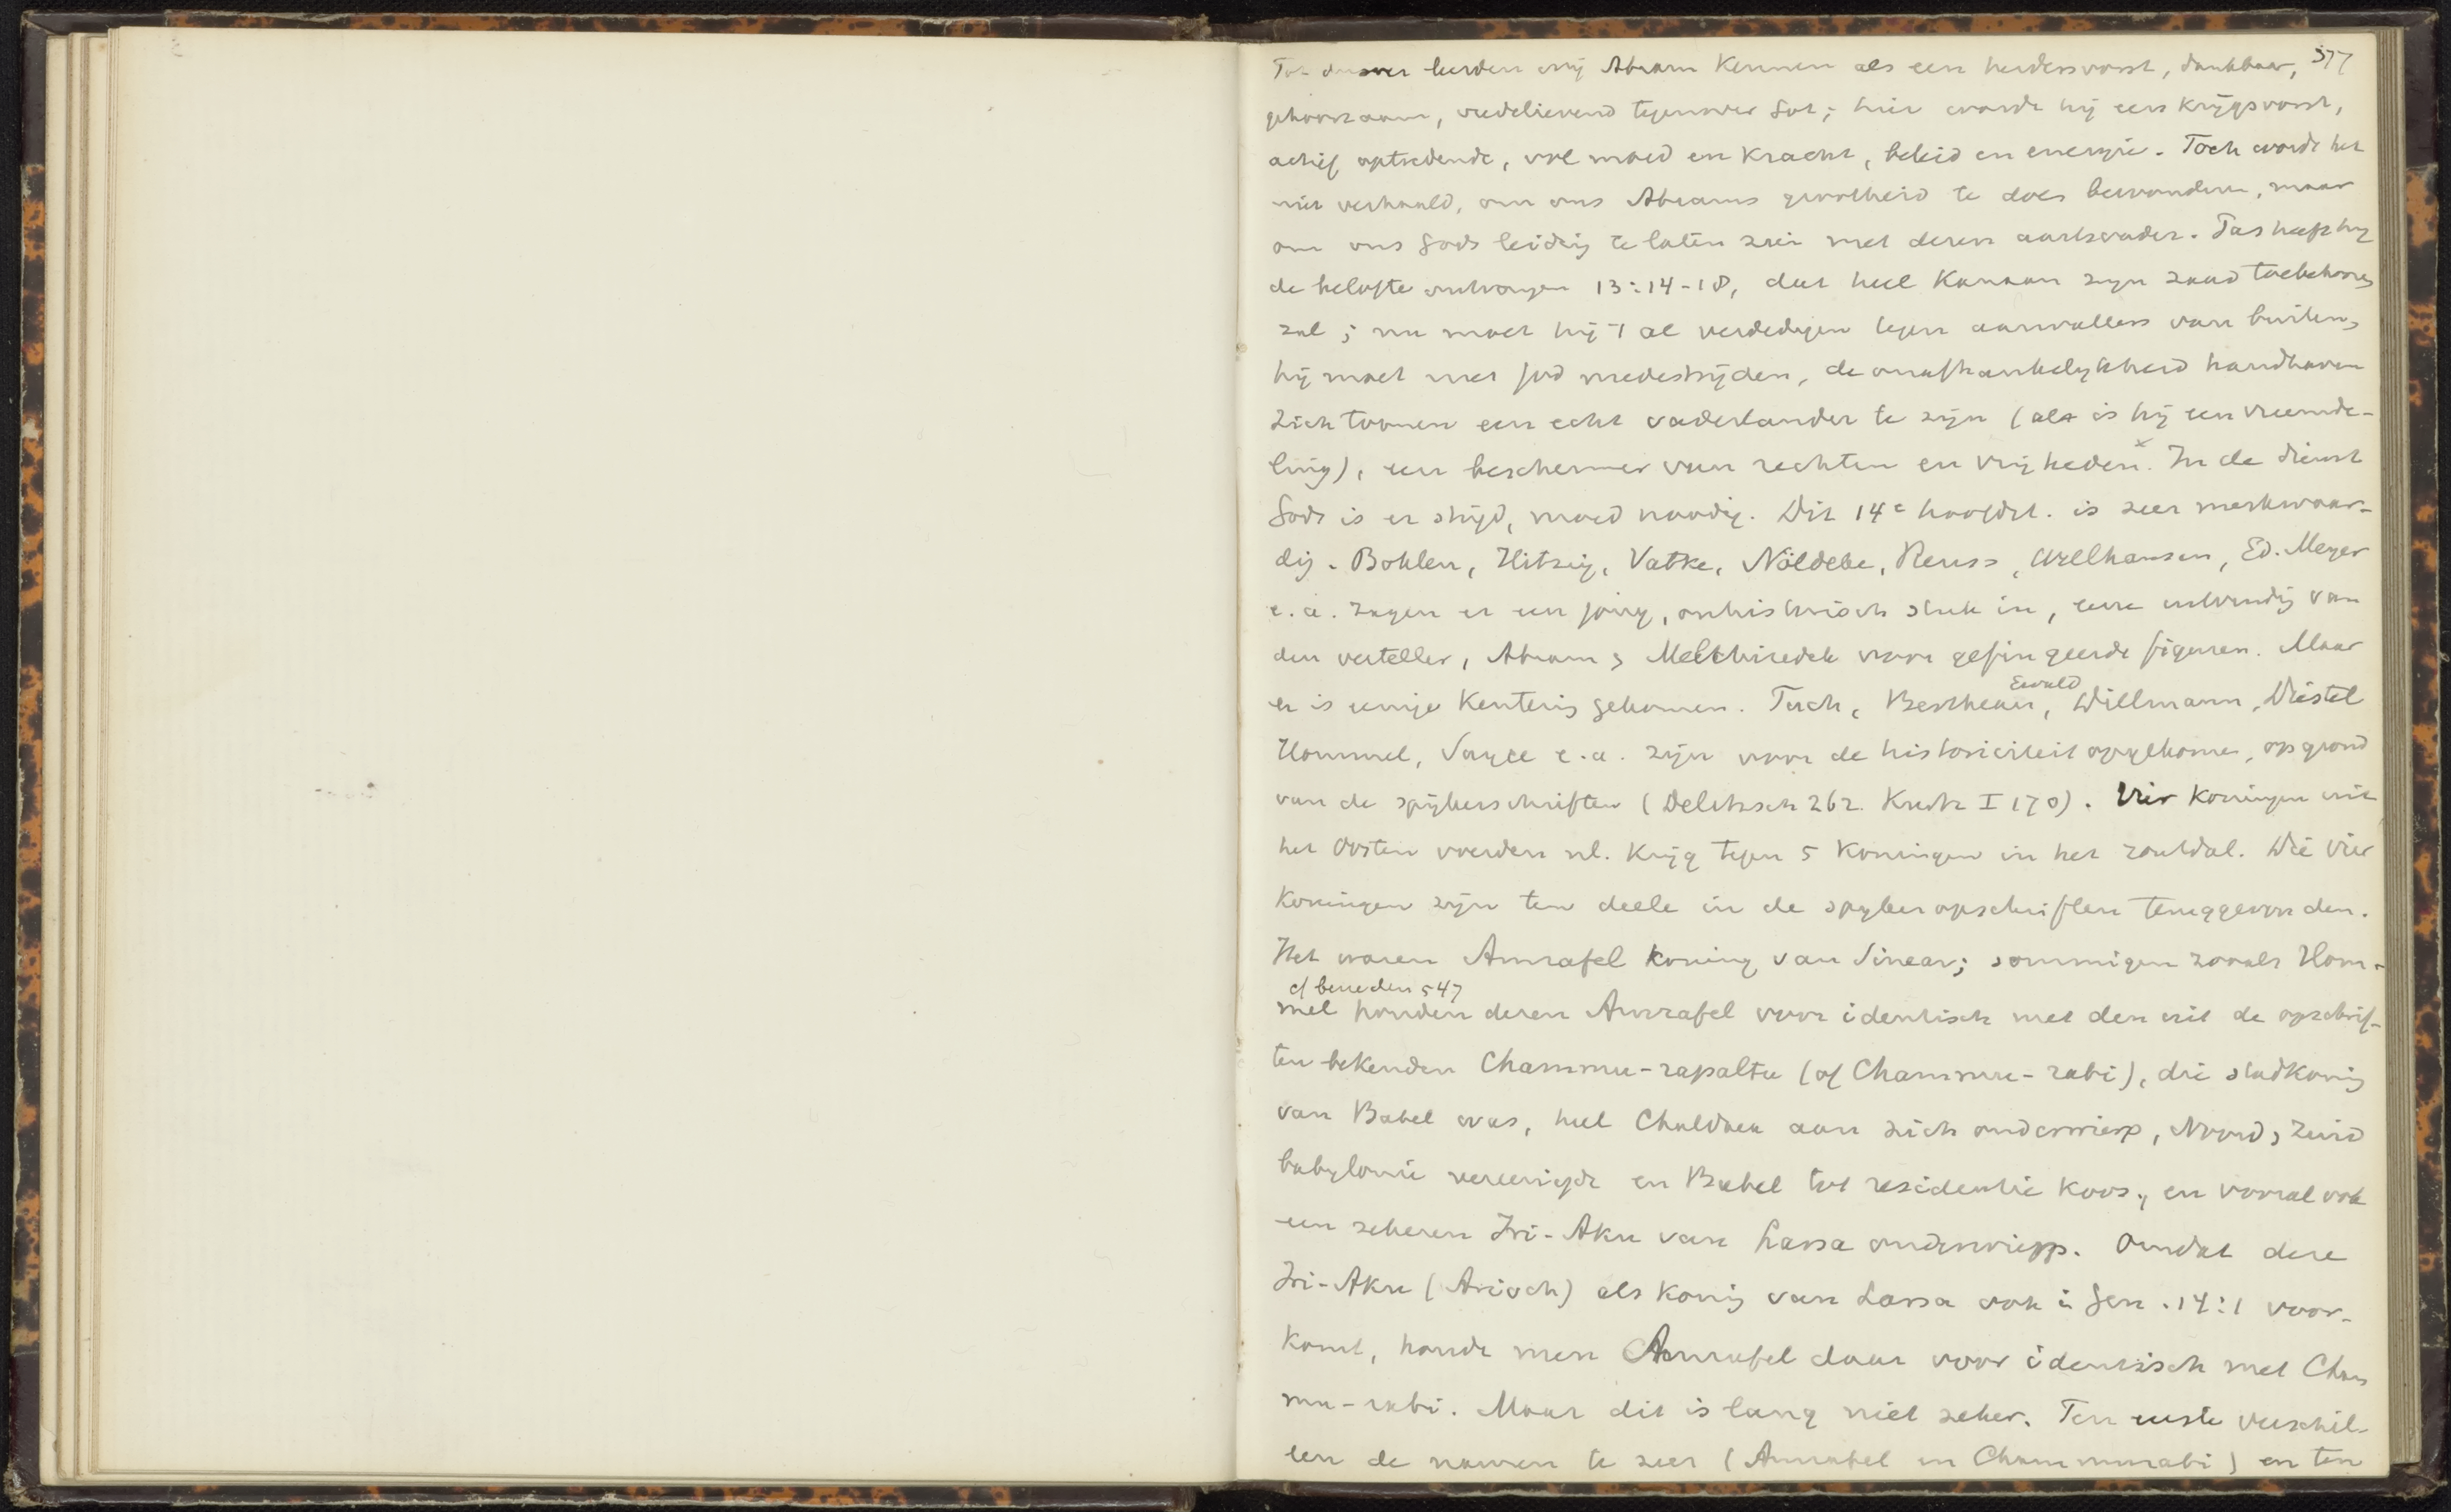 377
Tot dusver leerden wij Abram kennen als een herdersvorst, dankbaar,
gehoorzaam, vredelievend tegenover Lot; hier wordt hij een krijgsvorst,
actief optredende, vol moed en kracht, beleid en energie. Toch wordt het
niet verhaald, om ons Abrams grootheid te doen bewonderen, maar
om ons Gods leiding te laten zien met dezen aartsvader. Pas heeft hij
de belofte ontvangen 13:14-18, dat heel Kanaan zijn zaad toebehooren
zal; nu moet hij 't al verdedigen tegen aanvallers van buiten,
hij moet met God medestrijden, de onafhankelijkheid handhaven
zich toonen een echt vaderlander te zijn (als is hij een vreemde-
ling), een beschermer van rechten en vrijheden.x In de dienst
Gods is er strijd, moed noodig. Dit 14e hoofdst. is zeer merkwaar-
dig. Bohlen, Hitzig, Vatke, Nöldeke, Reuss, Wellhausen, Ed. Meyer
e.a. zagen er een jong, onhistorisch stuk in, eene uitvinding van
den verteller, Abram & Melchizedek waren gefingeerde figuren. Maar
er is eenige kentering gekomen. Tuch, Bertheau, Ewald, Dillmann, Diestel
Hommel, Sayce e.a. zijn voor de historiciteit opgekomen, op grond
van de spijkerschriften (Delitzsch 262. Kurtz I 170). Vier koningen uit
het Oosten voerden nl. krijg tegen 5 koningen in het zoutdal. Die vier
koningen zijn ten deele in de spijkeropschriften teruggevonden.
Het waren Amrafel koning van Sinear; sommigen zooals Hom-
cf beneden 547
mel houden dezen Amrafel voor identisch met den uit de opschrif-
ten bekenden Chammu-rapaltu (of Chammu-rabi), die stadkoning
van Babel was, heel Chaldaea aan zich onderwierp, Noord & Zuid
babylonie vereenigde en Babel tot residentie koos, en vooral ook
een zekeren Iri-Aku van Larsa onderwierp. Omdat deze
Iri-Aku (Arioch) als koning van Larsa ook in Gen. 14:1 voor-
komt, houdt men Amrafel daar voor identisch met Cham
mu-rabi. Maar dit is lang niet zeker. Ten eerste verschil-
len de namen te zeer (Amrafel en Chammurabi) en ten